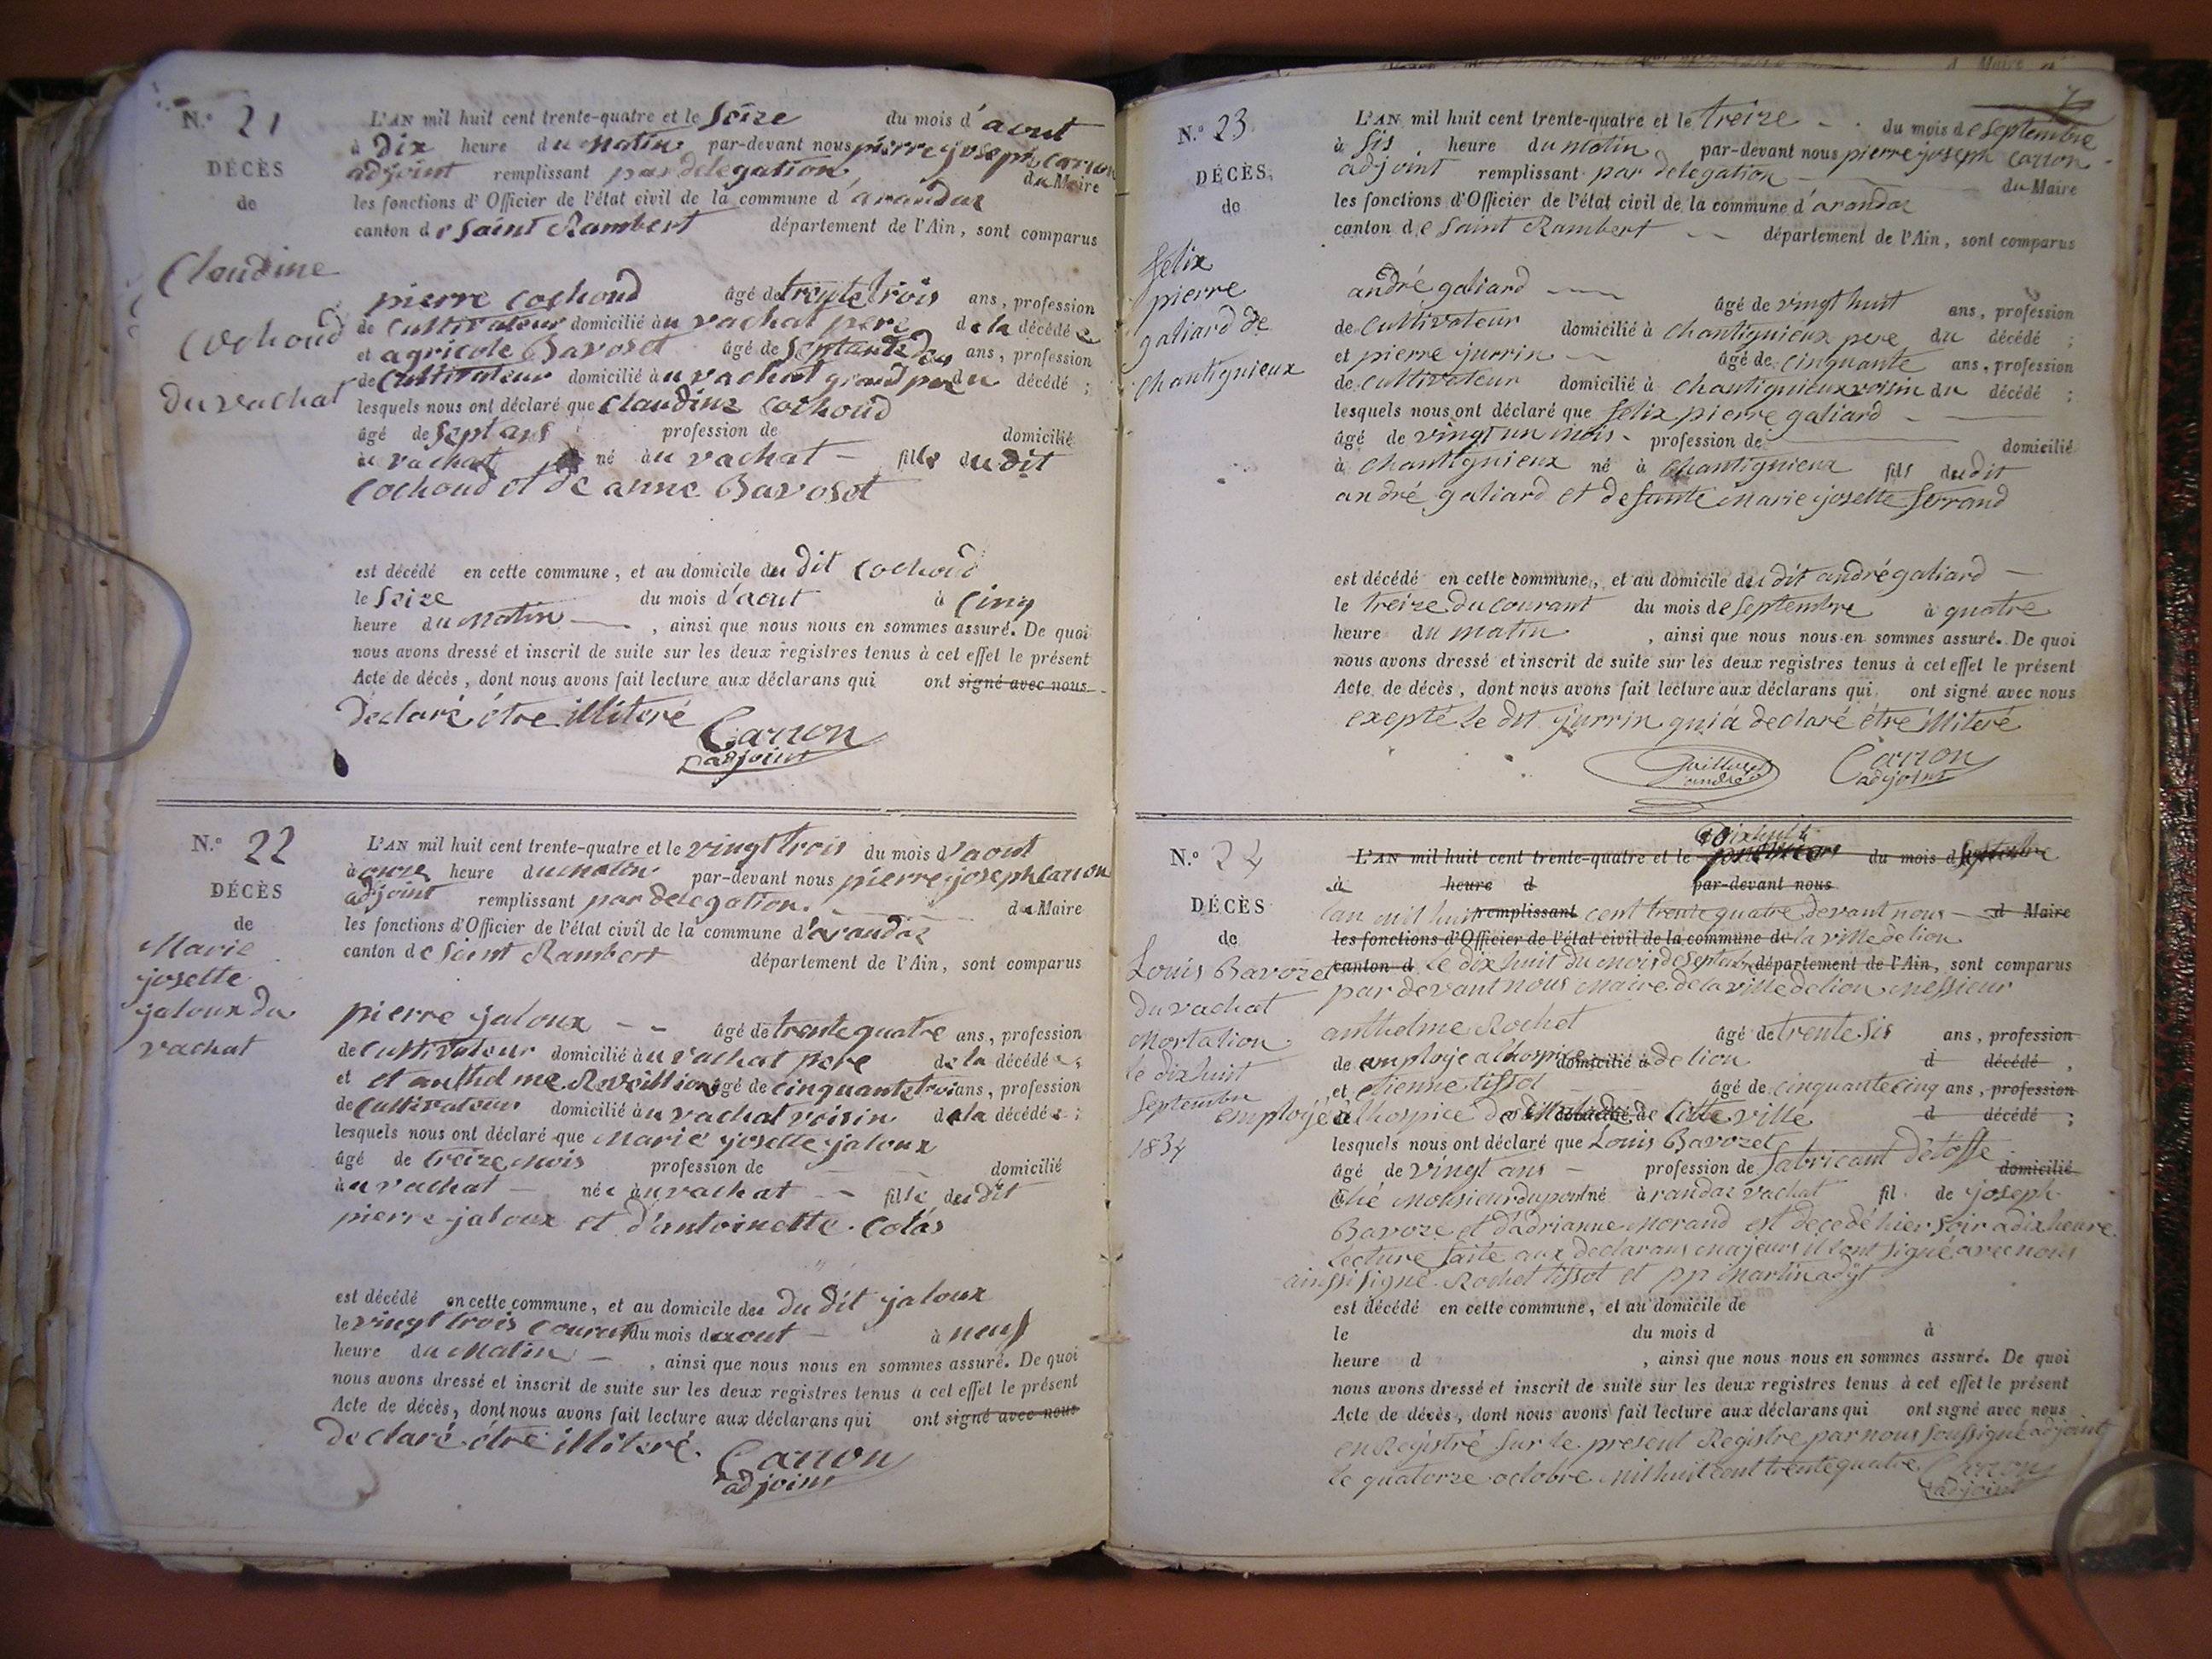 N.o 21
DÉCÈS
de
Claudine
Cochoud
du vachat
L'AN mil huit cent trente-quatre et le Seize du mois d'aout
à Dix heure du Matin par-devant nous pierre joseph Carron
adjoint remplissant par delegation du Maire
les fonctions d'Officier de l'état civil de la commune d'arandaz
canton de Saint Rambert département de l'Ain, sont comparus
pierre Cochoud âgé de trente trois ans, profession
de Cultivateur domicilié au vachat pere de la décédée
et agricole Bavozet âgé de Septante ans, profession
de Cultivateur domicilié au vachat grand pere du décédé ;
lesquels nous ont déclaré que Claudine Cochoud
âgé de Sept ans profession de domicilié
au vachat né au vachat - fille du dit
Cochoud et de anne Bavoset
est décédé en cette commune, et au domicile du dit Cochoud
le Seize du mois d'aout à Cinq
heure du Matin , ainsi que nous nous en sommes assuré. De quoi
nous avons dressé et inscrit de suite sur les deux registres tenus à cet effet le présent
Acte de décès, dont nous avons fait lecture aux déclarans qui ont signé avec nous
declaré étre illiteré
Carron
adjoint
N.o 22
DÉCÈS
de
Marie
josette
jaloux du
vachat
L'AN mil huit cent trente-quatre et le vingt trois du mois d'aout
à onze heure du matin par-devant nous pierre joseph Carron
adjoint remplissant par delegation. du Maire
les fonctions d'Officier de l'état civil de la commune d'arandaz
canton de Saint Rambert département de l'Ain, sont comparus
pierre jaloux âgé de trente quatre ans, profession
de Cultivateur domicilié au vachat pere de la décédée ;
et et anthelme Reveillion âgé de cinquante trois ans, profession
de Cultivateur domicilié au vachat voisin de la décédée ;
lesquels nous ont déclaré que Marie josette jaloux
âgé de treize mois profession de domicilié
au vachat - née au vachat - fille du dit
pierre jaloux et d'antoinette Colas
est décédé en cette commune, et au domicile de du dit jaloux
le vingt trois courant du mois d'aout - à neuf
heure du Matin , ainsi que nous nous en sommes assuré. De quoi
nous avons dressé et inscrit de suite sur les deux registres tenus a cet effet le présent
Acte de décès, dont nous avons fait lecture aux déclarans qui ont signé avec nous
declaré étre illiteré.
Carron
adjoint
N.o 23
DÉCÈS
de
felix
pierre
galiard de
chantignieux
L'AN mil huit cent trente-quatre et le treize du mois de Septembre
à Sis heure du matin par-devant nous pierre joseph Carron
adjoint remplissant par delegation du Maire
les fonctions d'Officier de l'état civil de la commune d'arandaz
canton de Saint Rambert département de l'Ain, sont comparus
andré galiard âgé de vingt huit ans, profession
de Cultivateur domicilié à Chantignieux pere du décédé ;
et pierre jurrin âgé de cinquante ans, profession
de Cultivateur domicilié à Chantignieux voisin du décédé ;
lesquels nous ont déclaré que felix pierre galiard
âgé de vingt un mois - profession de domicilié
à Chantignieux né à Chantignieux fils du dit
andré galiard et defunte Marie josette ferrand
est décédé en cette commune, et au domicile du dit andré galiard
le treize du courant du mois de Septembre à quatre
heure du matin , ainsi que nous nous en sommes assuré. De quoi
nous avons dressé et inscrit de suite sur les deux registres tenus à cet effet le présent
Acte de décès, dont nous avons fait lecture aux déclarans qui ont signé avec nous
exepté le dit jurrin qui a declaré étre illiteré
andré
Carron
adjoint
N.o 24
DÉCÈS
de
Louis Bavozet
du vachat
Mortation
le dixhuit
Septembre
1834
L'AN mil huit cent trente-quatre et le Dixhuit du mois d Septembre
à heure d par-devant nous
lan mil huit remplissant cent trente quatre devant nous d Maire
les fonctions d'Officier de l'état civil de la commune de la ville de lion
canton d le dix huit du mois de Septembre département de l'Ain, sont comparus
par devant nous Maire de la ville de lion Messieur
anthelme Rochet âgé de trente Sis ans, profession
de employe a lhospice domicilié à de lion d décédé ,
et etienne tissot âgé de cinquante cinq ans, profession
employé a lhospice domicilié de Cette ville d décédé ;
lesquels nous ont déclaré que Louis Bavozet
âgé de vingt ans - profession de fabricant d'étoffe domicilié
Monsieur dupont né arandaz vachat fil de joseph
Bavoze et d'adrianne Morand est decedé hier Soir a dix heure
lecture faite aux declarans majeurs il ont Signé avec nous
ainssi Signé Rochet tissot et pp Martin adjt
est décédé en cette commune, et au domicile de
le du mois d à
heure d , ainsi que nous nous en sommes assuré. De quoi
nous avons dressé et inscrit de suite sur les deux registres tenus à cet effet le présent
Acte de décès, dont nous avons fait lecture aux déclarans qui ont signé avec nous
enRegistré Sur le present Registre par nous Soussigné adjoint
le quatorze octobre mil huit cent trente quatre Carron
adjoint